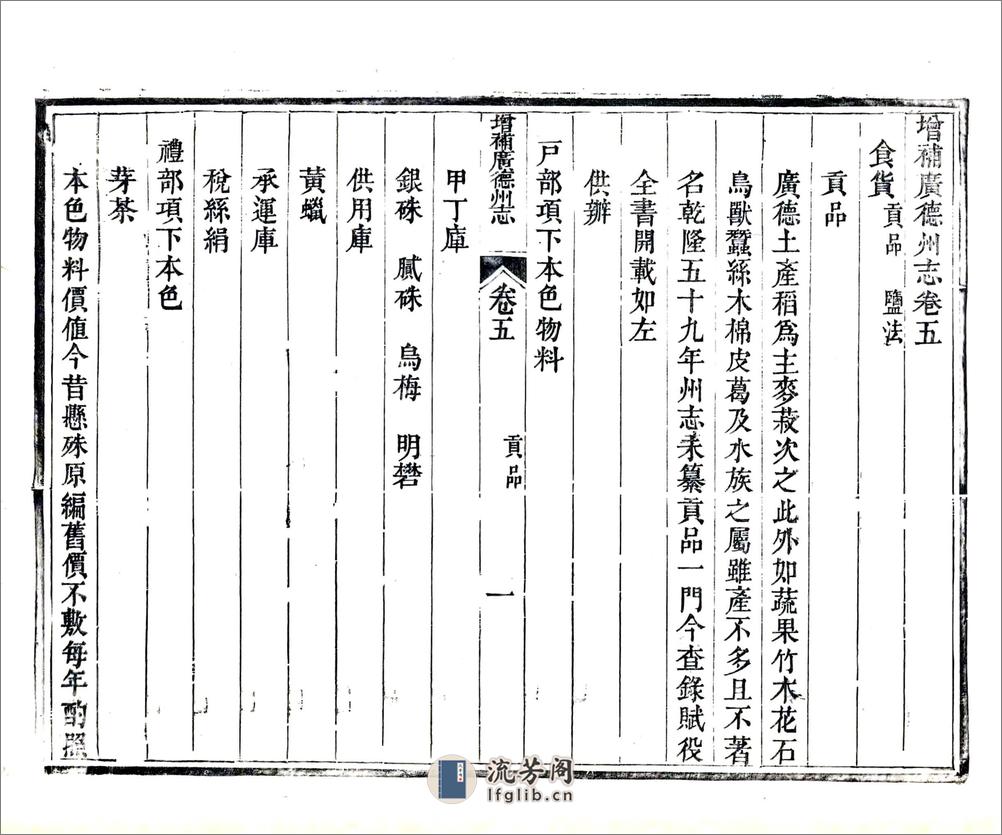 增補廣德州志卷五
食貨 貢品 鹽法
貢品
廣德土產稻爲主麥菽次之此外如蔬果竹木花石
鳥獸蠶絲木棉皮葛及水族之屬雖產不多且不著
名乾隆五十九年州志未纂貢品一門今查錄賦役
全書開載如左
供辦
戸部項下本色物料
增補廣德州志 卷五 貢品 一
甲丁庫
銀硃 膩硃 烏梅 明礬
供用庫
黃蠟
承運庫
稅絲絹
禮部項下本色
芽茶
本色物料價值今昔懸殊原編舊價不敷每年酌照
流芳阁
lfglib.cn